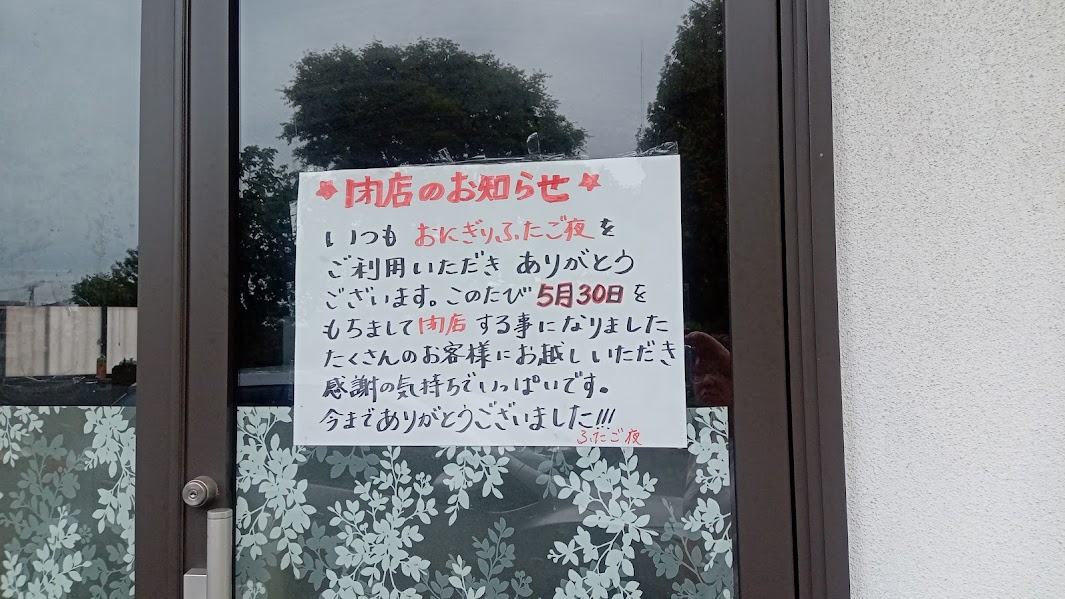 ★閉店のお知らせ★
いつも おにぎりふたご夜を
ご利用いただき ありがとう
ございます。このたび 5月30日を
もちまして閉店する事になりました
たくさんのお客様にお越しいただき
感謝の気持ちでいっぱいです。
今までありがとうございました!!!
ふたご夜